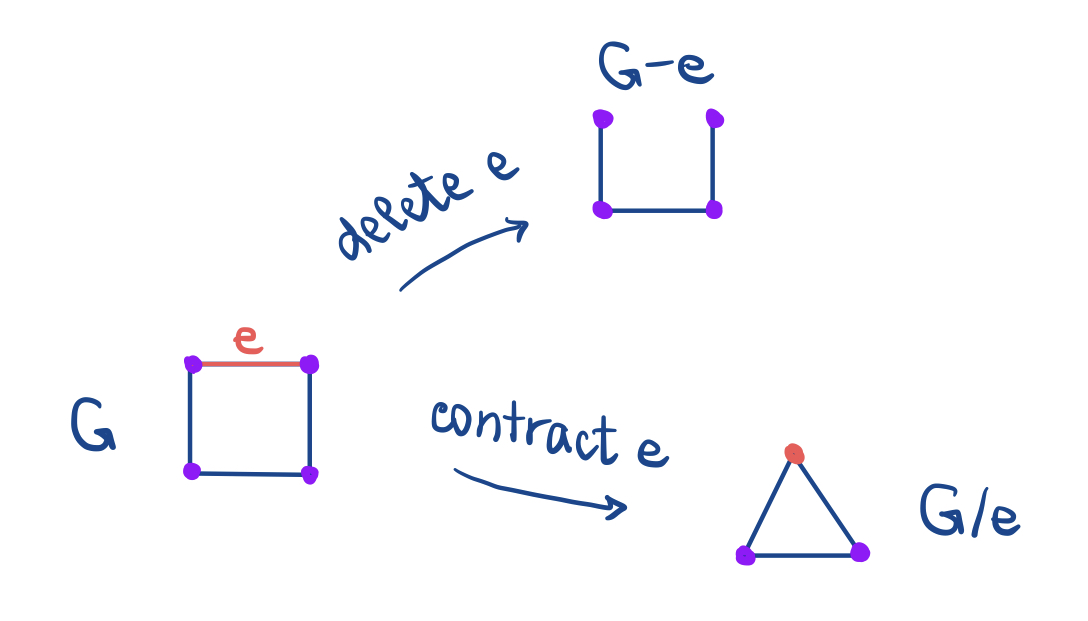 G-e
delete e
e
G
contract e
G/e